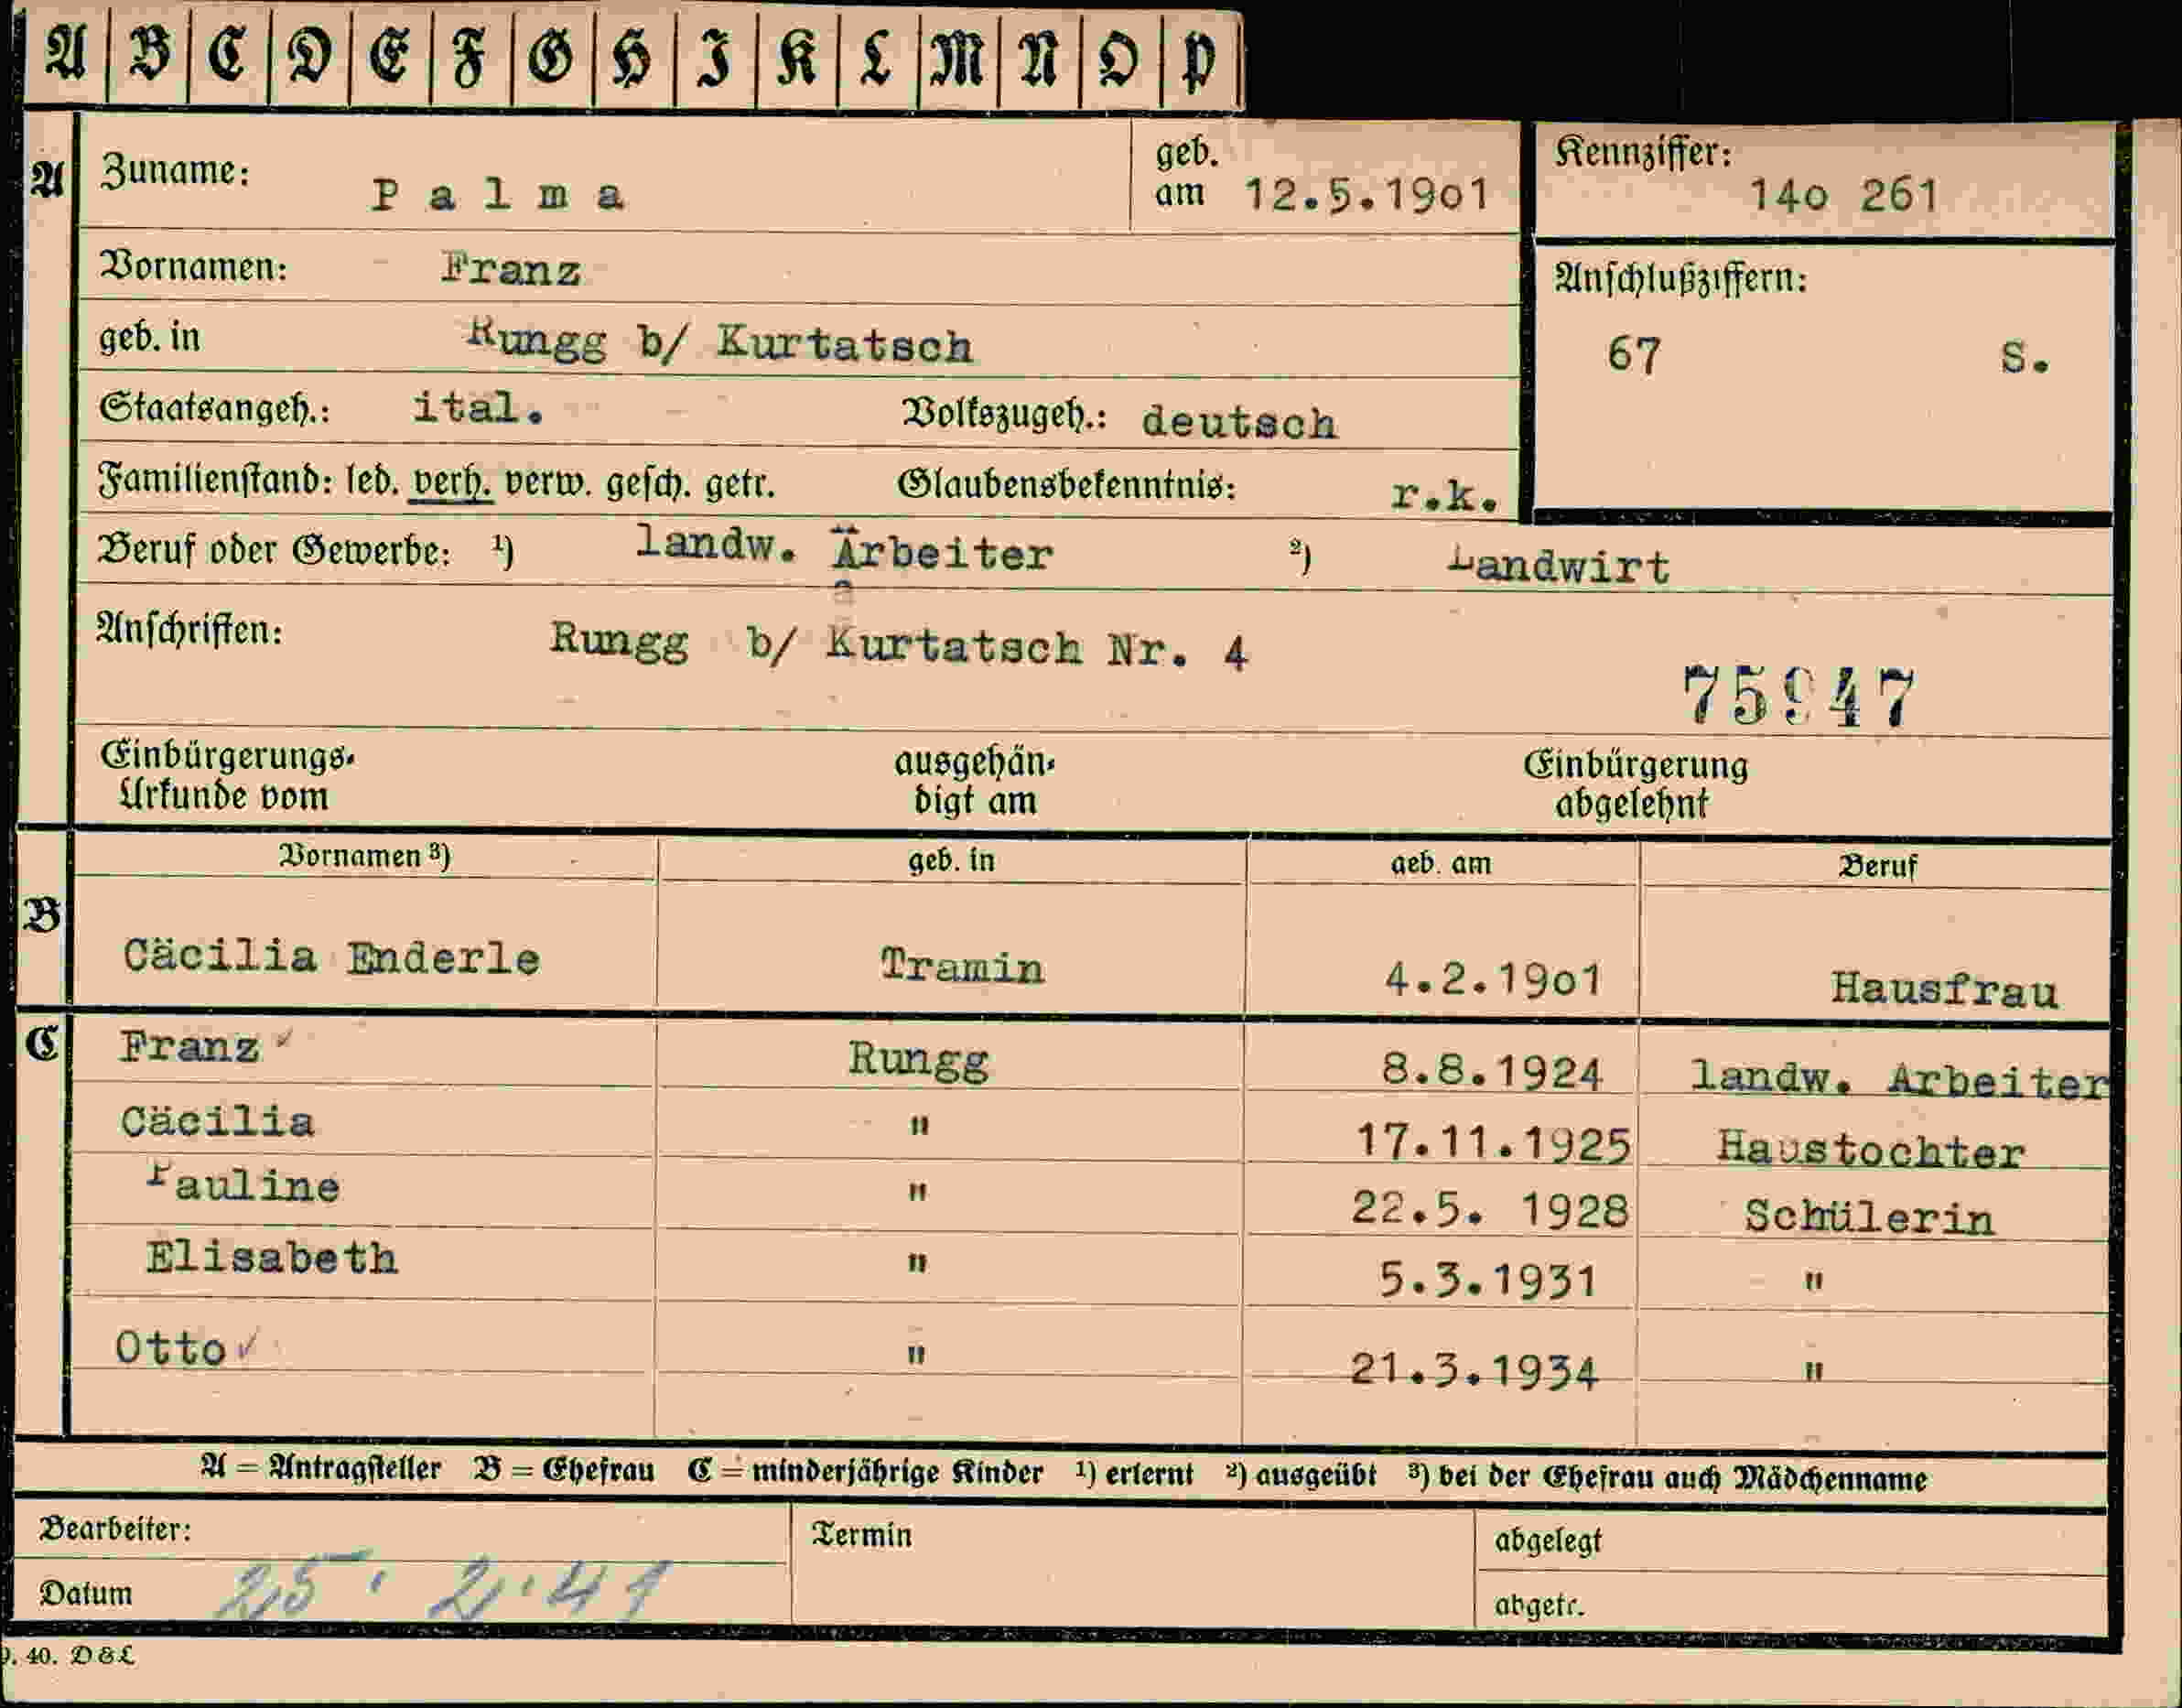 A B C D E F G H I K L M N O P
A Zuname: Palma geb. am 12.5.19o1 Kennziffer: 14o 261
Vornamen: Franz Anschlußziffern:
geb. in Rungg b/ Kurtatsch 67 S.
Staatsangeh.: ital. Volkszugeh.: deutsch
Familienstand: led. verh. verw. gesch. getr. Glaubensbekenntnis: r.k.
Beruf oder Gewerbe: 1) landw. Ärbeiter 2) Landwirt
Anschriften: Rungg b/ Kurtatsch Nr. 4
75947
Einbürgerungs- ausgehän- Einbürgerung
Urkunde vom digt am abgelehnt
Vornamen 3) geb. in geb. am Beruf
B
Cäcilia Enderle Tramin 4.2.19o1 Hausfrau
C Franz ✓ Rungg 8.8.1924 landw. Arbeiter
Cäcilia " 17.11.1925 Haustochter
Pauline " 22.5. 1928 Schülerin
Elisabeth " 5.3.1931 "
Otto ✓ " 21.3.1934 "
A = Antragsteller B = Ehefrau C = minderjährige Kinder 1) erlernt 2) ausgeübt 3) bei der Ehefrau auch Mädchenname
Bearbeiter: Termin abgelegt
Datum 25. 2. 41 abgetr.
. 40. D&L